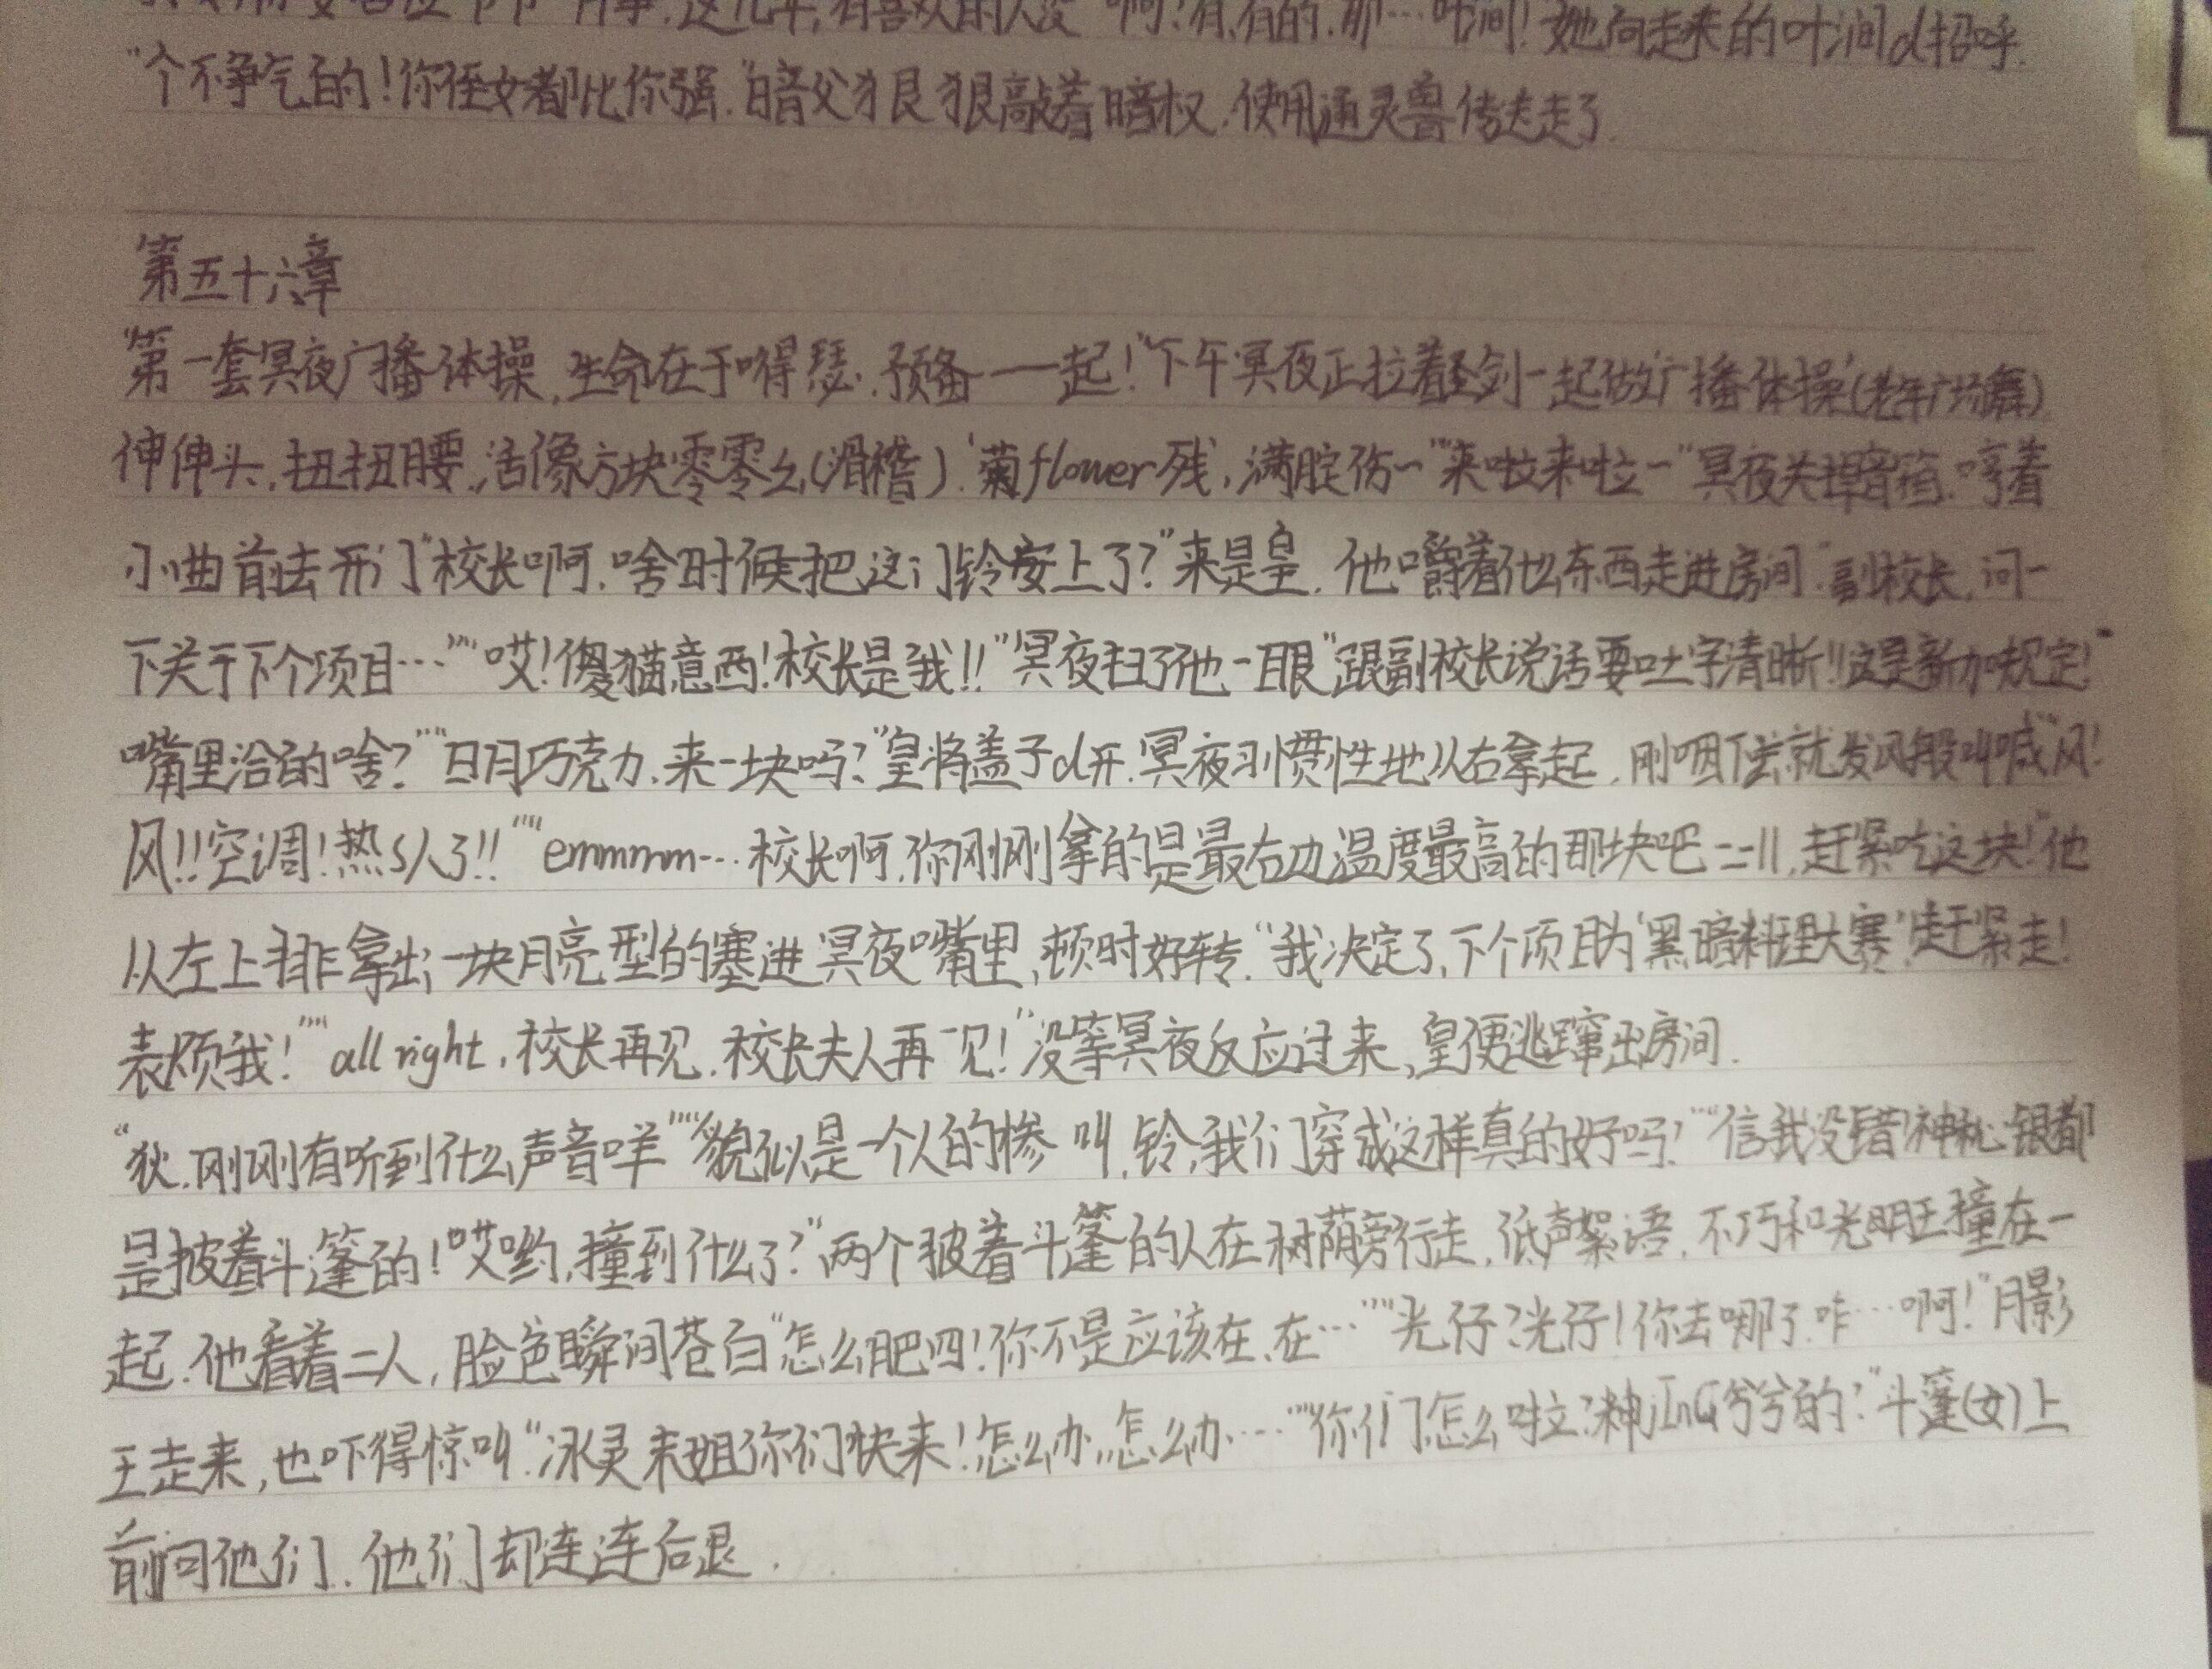 这几年,有喜欢的人没""啊?有,有的.那…叶涧!"她向走来的叶涧d招呼.
"个不争气的!你侄女都比你强."暗父狠狠敲着暗权.使用通灵兽传送走了.
第五十六章
"第一套冥夜广播体操,生命在于嘚瑟.预备——起!"下午冥夜正拉着圣剑一起做'广播体操'(老年广场舞)
伸伸头,扭扭腰,活像方块零零幺(滑稽).'菊flower残,满腚伤~'"来啦来啦~"冥夜关掉音箱.哼着
小曲前去开门"校长啊.啥时候把这门铃安上了?"来是皇.他嚼着什么东西走进房间."副校长,问一
下关于下个项目…""哎!傻猫意西!校长是我!!"冥夜扫了他一眼"跟副校长说话要吐字清晰!!这是新加规定!"
嘴里洽的啥?""日月巧克力.来一块吗?"皇将盖子d开.冥夜习惯性地从右拿起,刚咽下去就发风般叫喊"风!
风!!空调!热s人了!!""emmmm…校长啊.你刚刚拿的是最右边温度最高的那块吧二=||,赶紧吃这块!"他
从左上排拿出一块月亮型的塞进冥夜嘴里,顿时好转."我决定了,下个项目为'黑暗料理大赛'!赶紧走!
表烦我!""all right,校长再见.校长夫人再见!"没等冥夜反应过来,皇便逃蹿出房间.
"狄.刚刚有听到什么声音咩""貌似是一个人的惨叫.铃,我们穿成这样真的好吗?""信我没错!神秘银都
是披着斗篷的!哎哟,撞到什么了?"两个披着斗篷的人在树荫旁行走,低声絮语.不巧和光明王撞在一
起.他看着二人,脸色瞬间苍白"怎么肥四!你不是应该在、在…""光仔?光仔!你去哪了.咋…啊!"月影
王走来,也吓得惊叫."冰灵末姐你们快来!怎么办,怎么办…""你们怎么啦?神jInG兮兮的?"斗篷(女)上
前问他们.他们却连连后退.